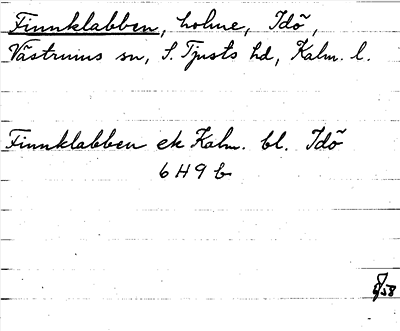 Finnklabben, holme, Idö,
Västrums sn, S. Tjusts hd, Kalm. l.
Finnklabben ek Kalm. bl. Idö
6 H 9 b